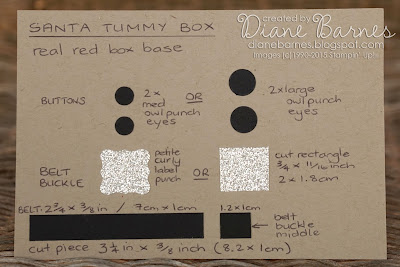 SANTA TUMMY BOX
real red box base
created by
Diane Barnes
dianebarnes.blogspot.com
Images (c)1990-2015 Stampin' Up!
BUTTONS
2x
med
owl punch
eyes
OR
2x large
owl punch
eyes
BELT
BUCKLE
petite
curly
label
punch
OR
cut rectangle
3/4 x 11/16 inch
2 x 1.8cm
BELT: 2 3/4 x 3/8 in / 7cm x 1cm
1.2 x 1cm
belt
buckle
middle
cut piece 3 1/4 in x 3/8 inch (8.2 x 1cm)